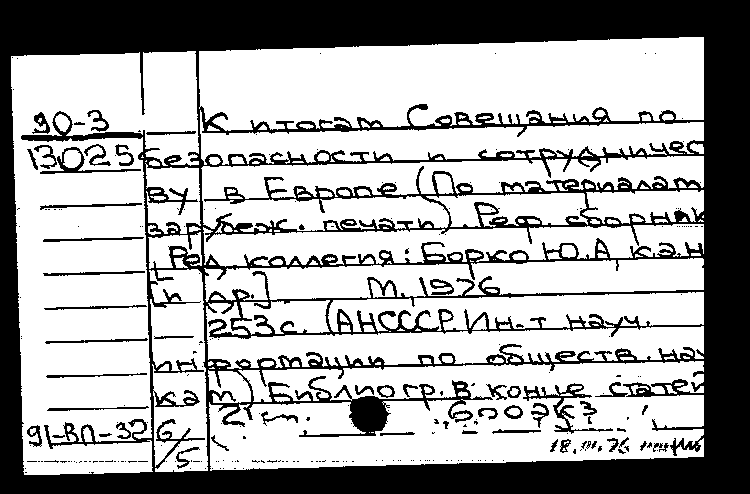 90-3
13025
К итогам Совещания по
безопасности и сотрудничес
ву в Европе. (По материалам
зарубеж. печати). Реф. сборник
[Ред. коллегия: Борко Ю.А, к.э.н
[и др.]. М., 1976.
253 с. (АН СССР. Ин-т науч.
информации по обществ. нау
кам). Библиогр. в конце статей
2
91-ВП-32 6/5
18.III.76